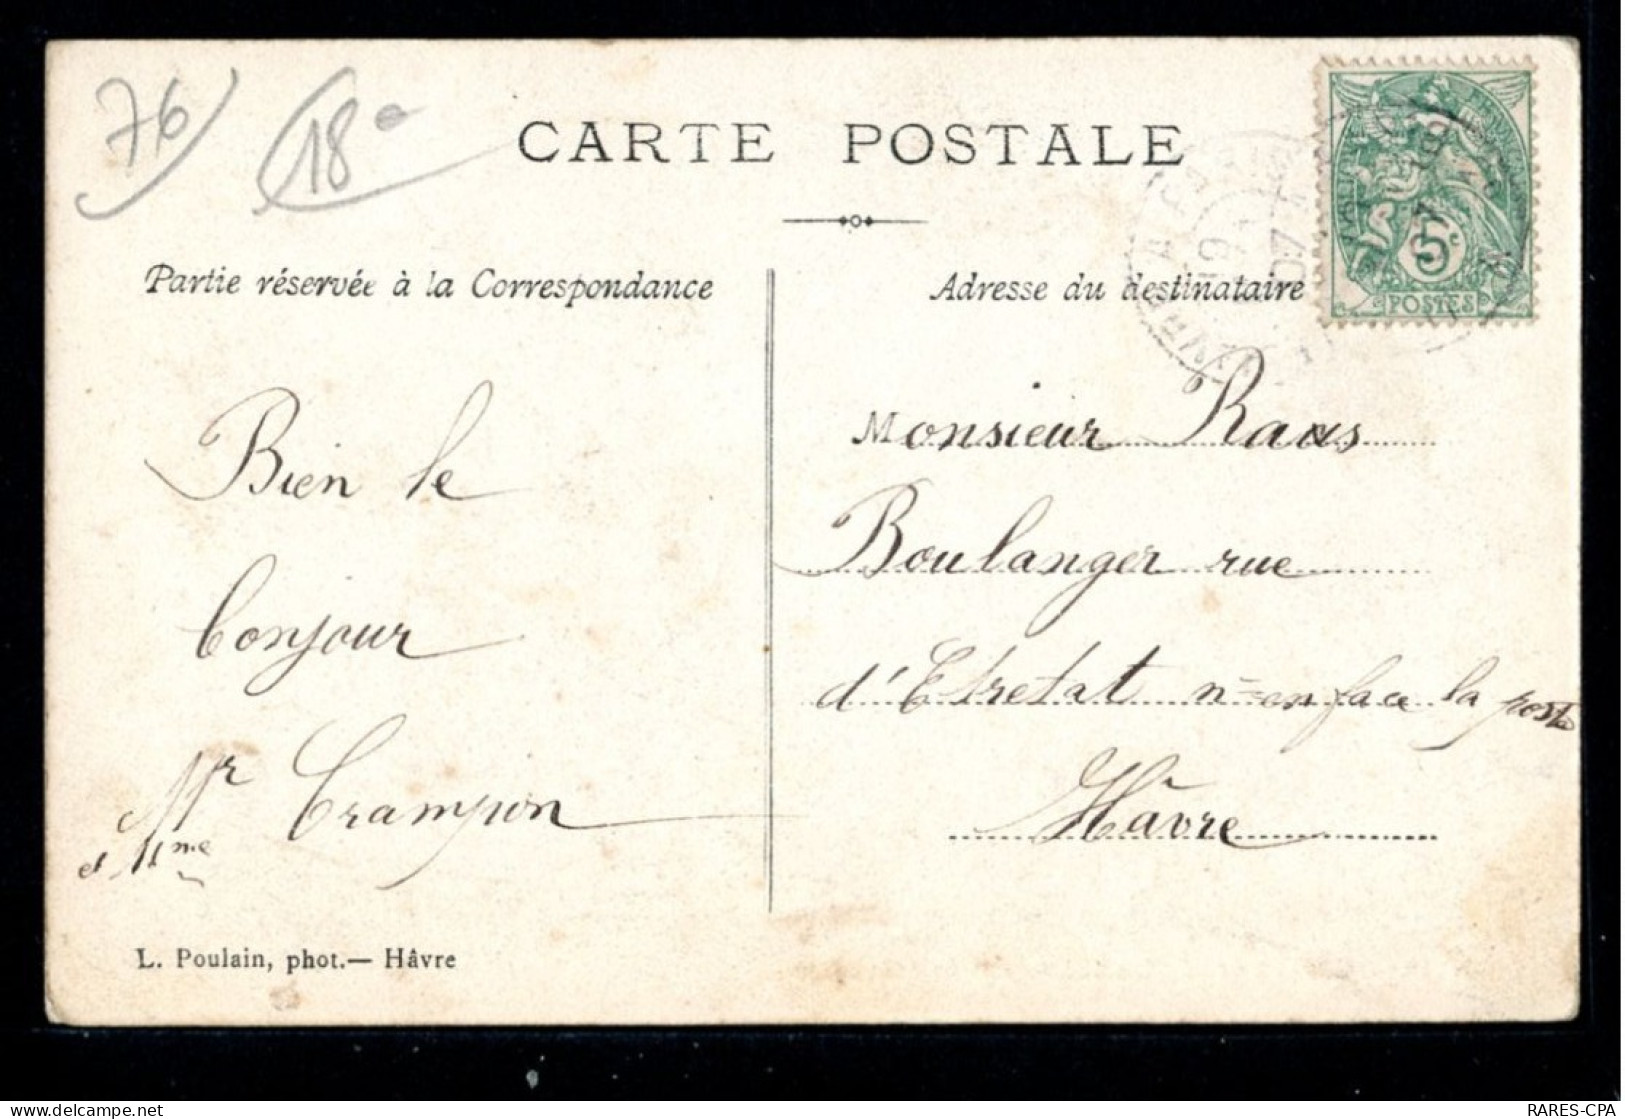 76 18
CARTE POSTALE
Partie réservée à la Correspondance
Adresse du destinataire
5c
POSTES
Bien le
bonjour
Mr Crampon
et Mme
L. Poulain, phot.— Hâvre
Monsieur Raas
Boulanger rue
d'Etretat n= en face la poste
Hâvre
RARES-CPA